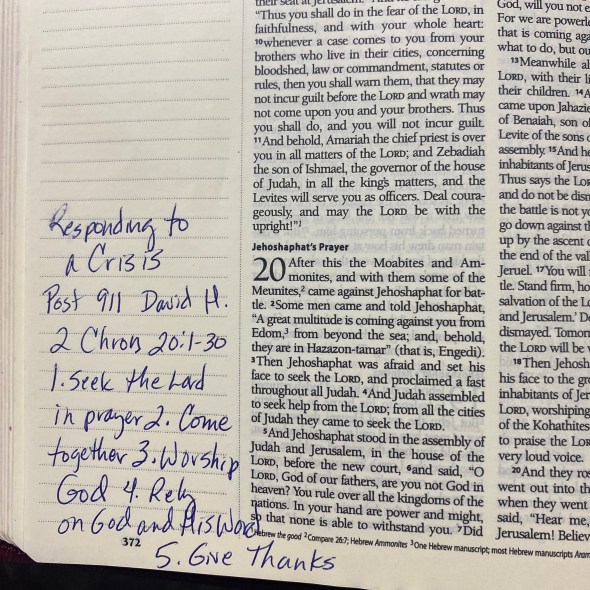 Responding to
a Crisis
Post 911 David H.
2 Chron 20:1-30
1. Seek the Lord
in prayer 2. Come
together 3. Worship
God 4. Rely
on God and His Word
372
5. Give Thanks
their seat at Jerusalem.
"Thus you shall do in the fear of the LORD, in
faithfulness, and with your whole heart:
10whenever a case comes to you from your
brothers who live in their cities, concerning
bloodshed, law or commandment, statutes or
rules, then you shall warn them, that they may
not incur guilt before the LORD and wrath may
not come upon you and your brothers. Thus
you shall do, and you will not incur guilt.
11And behold, Amariah the chief priest is over
you in all matters of the LORD; and Zebadiah
the son of Ishmael, the governor of the house
of Judah, in all the king's matters, and the
Levites will serve you as officers. Deal coura-
geously, and may the LORD be with the
upright!"1
Jehoshaphat's Prayer
20 After this the Moabites and Am-
monites, and with them some of the
Meunites,2 came against Jehoshaphat for bat-
tle. 2Some men came and told Jehoshaphat,
"A great multitude is coming against you from
Edom,3 from beyond the sea; and, behold,
they are in Hazazon-tamar" (that is, Engedi).
3Then Jehoshaphat was afraid and set his
face to seek the LORD, and proclaimed a fast
throughout all Judah. 4And Judah assembled
to seek help from the LORD; from all the cities
of Judah they came to seek the LORD.
5And Jehoshaphat stood in the assembly of
Judah and Jerusalem, in the house of the
LORD, before the new court, 6and said, "O
LORD, God of our fathers, are you not God in
heaven? You rule over all the kingdoms of the
nations. In your hand are power and might,
so that none is able to withstand you. 7Did
Hebrew the good 2Compare 26:7; Hebrew Ammonites 3One Hebrew manuscript; most Hebrew manuscripts
God, will you not e
For we are powerle
that is coming aga
what to do, but ou
13Meanwhile al
LORD, with their li
their children. 14A
came upon Jahazie
of Benaiah, son of
Levite of the sons o
assembly. 15And he
inhabitants of Jerus
Thus says the Lor
and do not be dism
the battle is not yo
go down against th
up by the ascent o
the end of the val
Jeruel. 17You will
tle. Stand firm, ho
salvation of the Lo
and Jerusalem.' Do
dismayed. Tomorr
the LORD will be w
18Then Jehosh
his face to the gro
inhabitants of Jer
LORD, worshiping
of the Kohathites
to praise the LOR
very loud voice.
20And they ros
went out into th
when they went
said, "Hear me,
Jerusalem! Believ